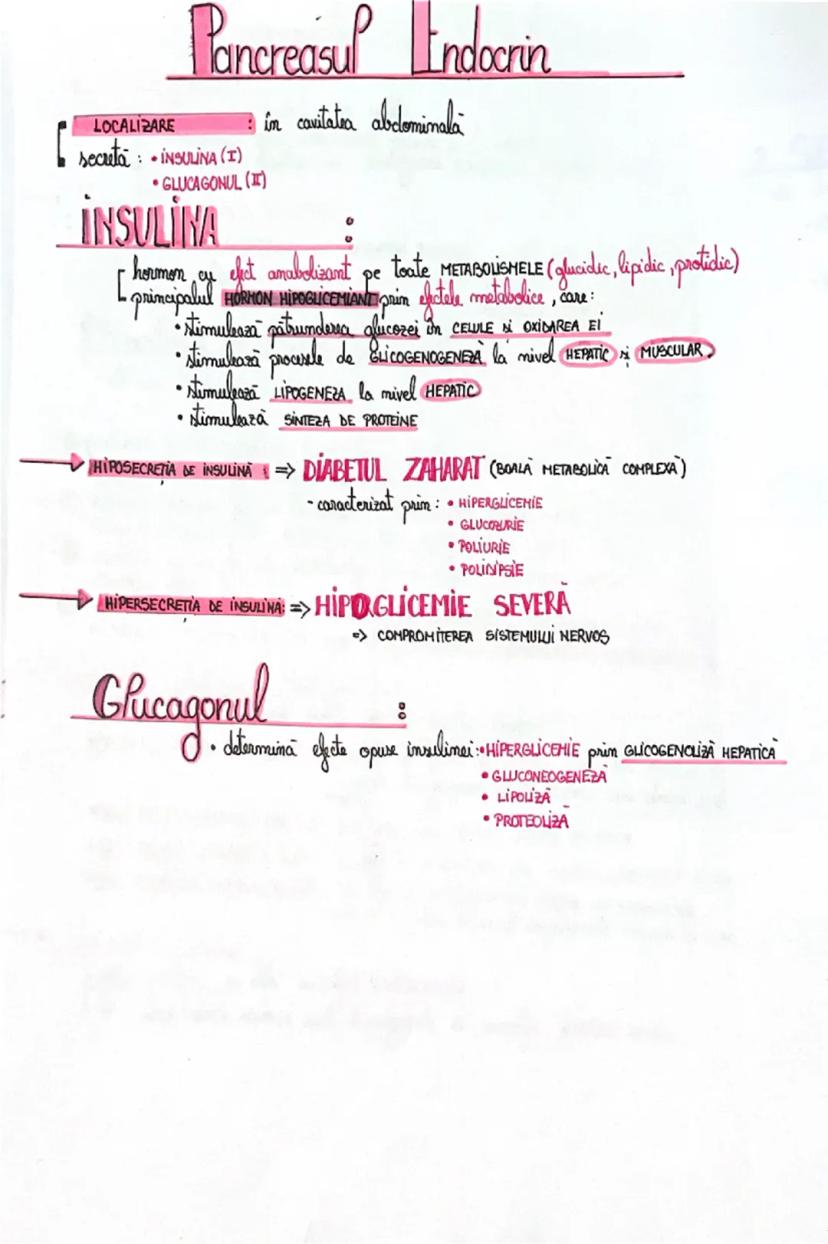 Pancreasul Endocrin
LOCALIZARE : în cavitatea abdominală
secretă : • INSULINA (I)
• GLUCAGONUL (II)
INSULINA :
hormon cu efect anabolizant pe toate METABOLISMELE (glucidic, lipidic, protidic)
principalul HORMON HIPOGLICEMIANT prin efectele metabolice, care:
• stimulează pătrunderea glucozei în CELULE ȘI OXIDAREA EI
• stimulează procesele de GLICOGENOGENEZĂ la nivel HEPATIC și MUSCULAR
• stimulează LIPOGENEZA la nivel HEPATIC
• stimulează SINTEZA DE PROTEINE
HIPOSECREȚIA DE INSULINĂ : => DIABETUL ZAHARAT (BOALĂ METABOLICĂ COMPLEXĂ)
- caracterizat prin : • HIPERGLICEMIE
• GLUCOZURIE
• POLIURIE
• POLIDIPSIE
HIPERSECREȚIA DE INSULINĂ: => HIPOGLICEMIE SEVERĂ
=> COMPROMITEREA SISTEMULUI NERVOS
Glucagonul :
• determină efecte opuse insulinei: • HIPERGLICEMIE prin GLICOGENOLIZĂ HEPATICĂ
• GLUCONEOGENEZĂ
• LIPOLIZĂ
• PROTEOLIZĂ